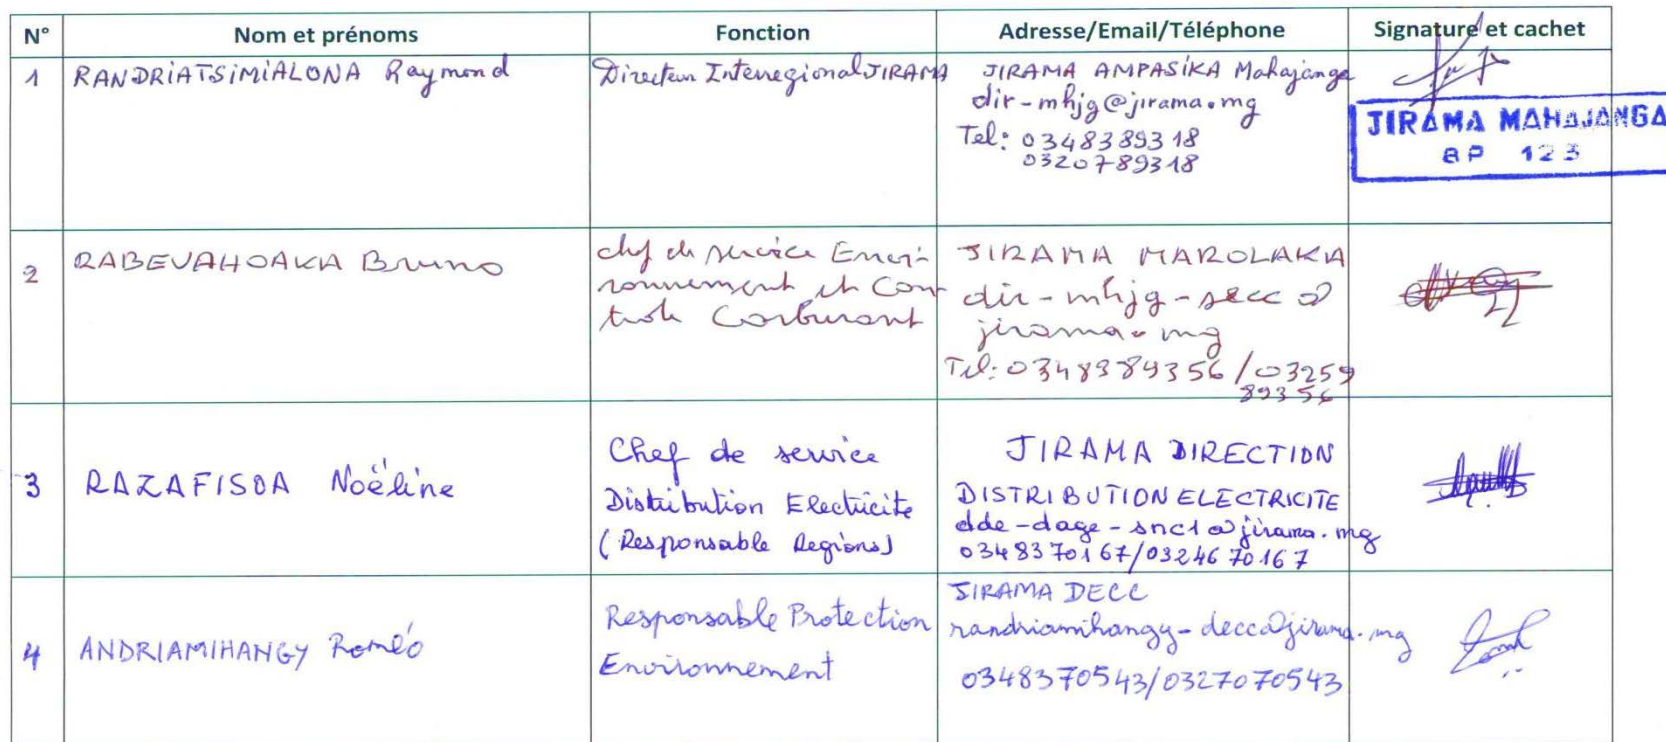 N° Nom et prénoms Fonction Adresse/Email/Téléphone Signature et cachet
1 RANDRIATSIMIALONA Raymond Directeur Interregional JIRAMA JIRAMA AMPASIKA Mahajanga
dir-mhjg@jirama.mg
Tel: 0348389318
0320789318
JIRAMA MAHAJANGA
BP 123
2 RABEVAHOAKA Bruno chef de service Envi-
ronnement et Con
trole Carburant
JIRAMA MAROLAKA
dir-mhjg-secc@
jirama.mg
Tel: 0348389356/03259
89356
3 RAZAFISOA Noëline
Chef de service
Distribution Electricite
(Responsable Regions)
JIRAMA DIRECTION
DISTRIBUTION ELECTRICITE
dde-dage-snc1@jirama.mg
0348370167/0324670167
4 ANDRIAMIHANGY Roméo
Responsable Protection
Environnement
JIRAMA DECC
randriamihangy-decc@jirama.mg
0348370543/0327070543